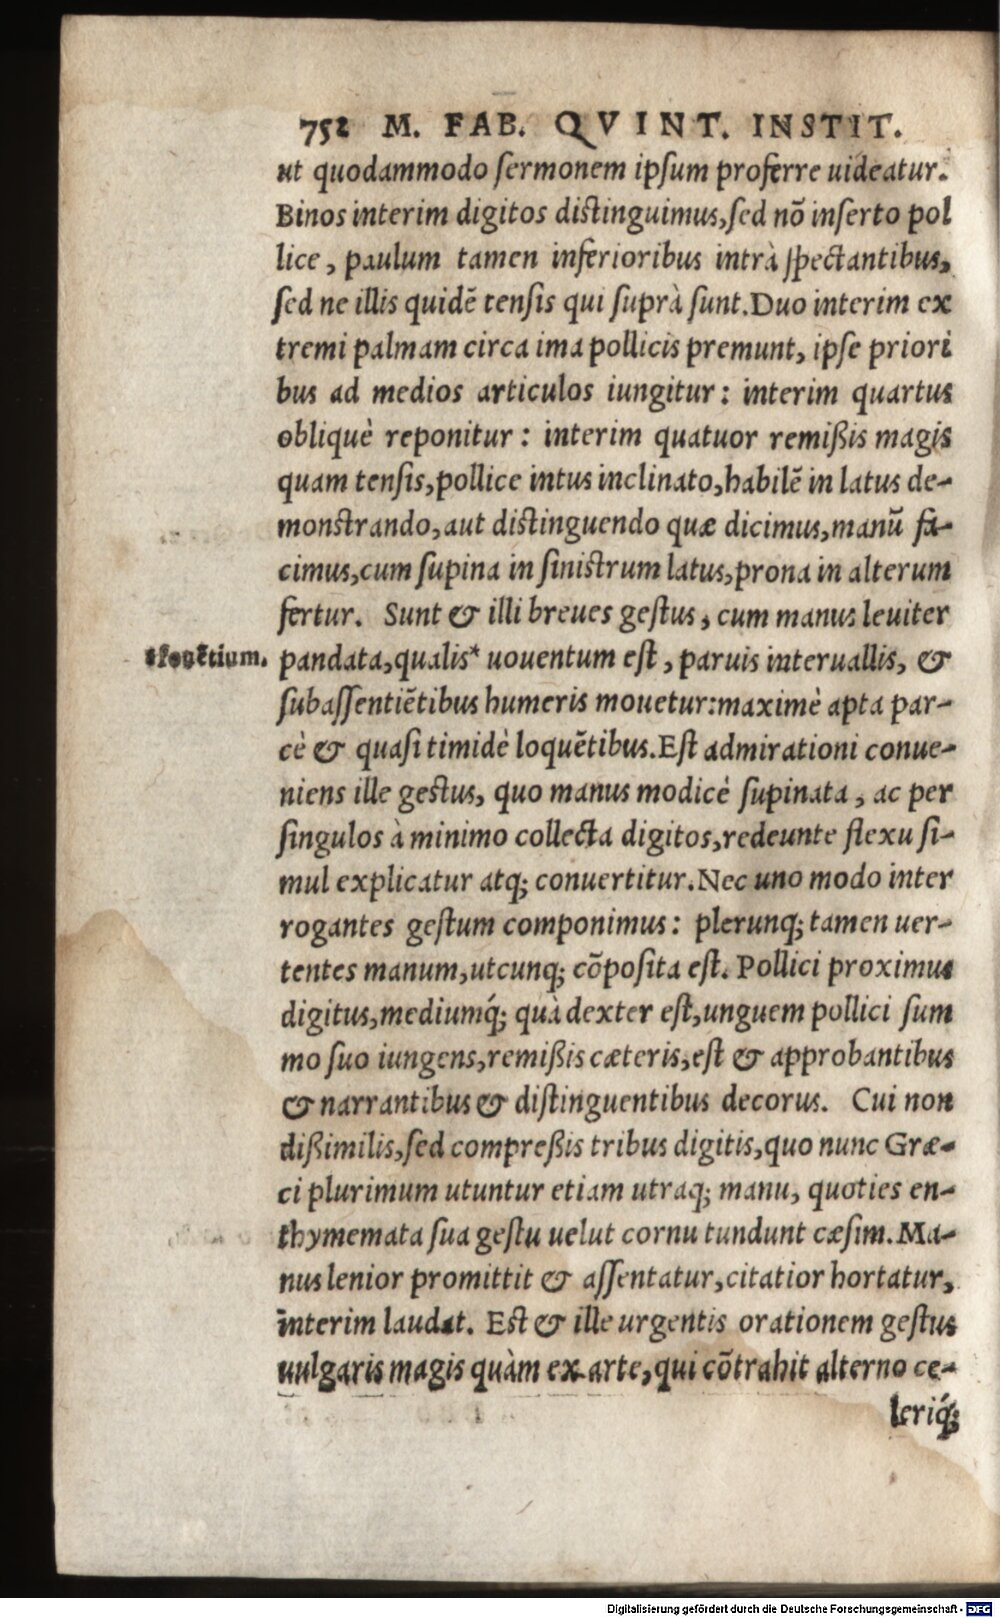 752 M. FAB. QVINT. INSTIT.
ut quodammodo sermonem ipsum proferre uideatur.
Binos interim digitos distinguimus, sed nō inserto pol
lice, paulum tamen inferioribus intrà spectantibus,
sed ne illis quidē tensis qui suprà sunt. Duo interim ex
tremi palmam circa ima pollicis premunt, ipse priori
bus ad medios articulos iungitur: interim quartus
obliquè reponitur: interim quatuor remißis magis
quam tensis, pollice intus inclinato, habilē in latus de-
monstrando, aut distinguendo quæ dicimus, manū fa-
cimus, cum supina in sinistrum latus, prona in alterum
fertur. Sunt & illi breues gestus, cum manus leuiter
pandata, qualis* uouentum est, paruis interuallis, &
subassentiētibus humeris mouetur: maximè apta par-
cè & quasi timidè loquētibus. Est admirationi conue-
niens ille gestus, quo manus modicè supinata, ac per
singulos à minimo collecta digitos, redeunte flexu si-
mul explicatur atq; conuertitur. Nec uno modo inter
rogantes gestum componimus: plerunq; tamen uer-
tentes manum, utcunq; cōposita est. Pollici proximus
digitus, mediumq́; quà dexter est, unguem pollici sum
mo suo iungens, remißis cæteris, est & approbantibus
& narrantibus & distinguentibus decorus. Cui non
dißimilis, sed compreßis tribus digitis, quo nunc Græ-
ci plurimum utuntur etiam utraq; manu, quoties en-
thymemata sua gestu uelut cornu tundunt cæsim. Ma-
nus lenior promittit & assentatur, citatior hortatur,
interim laudat. Est & ille urgentis orationem gestus
uulgaris magis quàm ex arte, qui cōtrahit alterno ce-
leriq́;
Digitalisierung gefördert durch die Deutsche Forschungsgemeinschaft - DFG